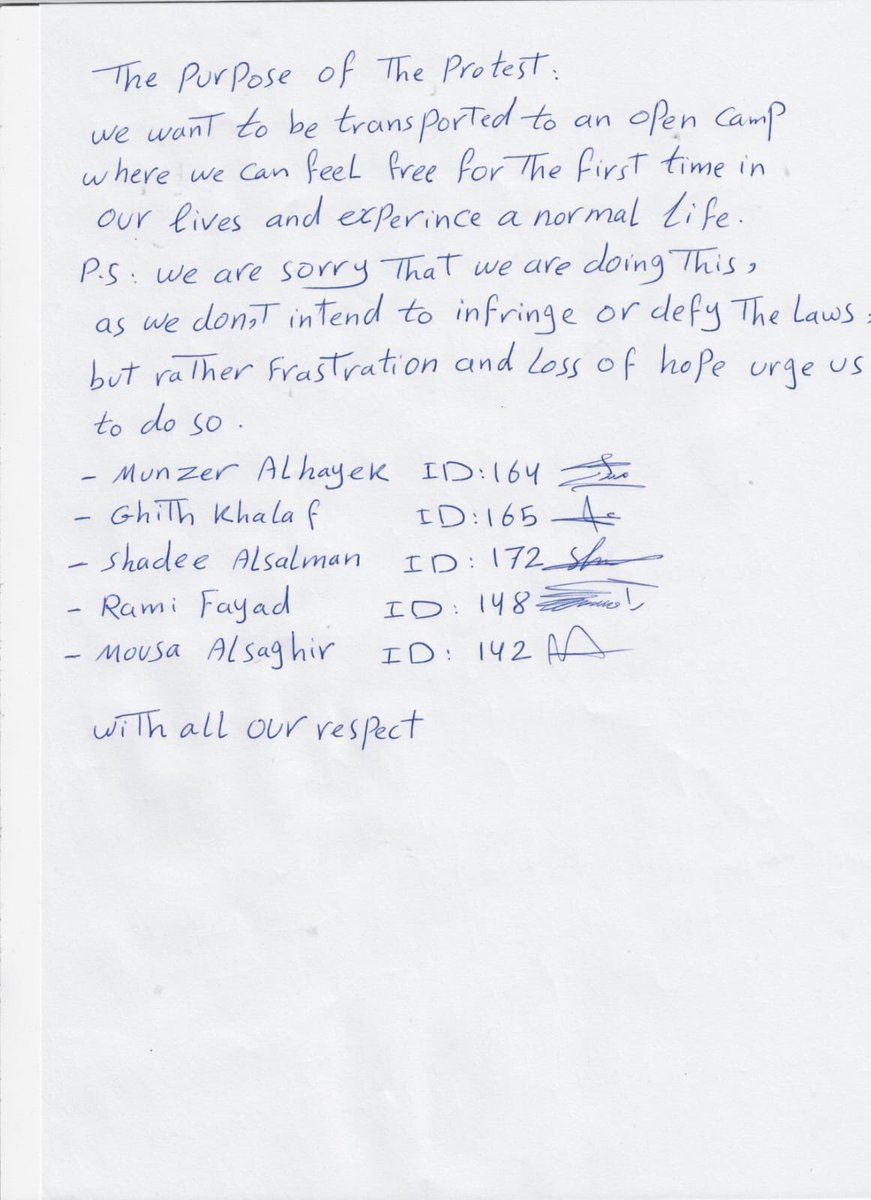 The Purpose of The Protest:
we want to be transported to an open camp
where we can feel free for The first time in
our lives and experince a normal life.
P.S: we are sorry That we are doing This,
as we don,t intend to infringe or defy The Laws,
but rather frastration and Loss of hope urge us
to do so.
- Munzer Alhayek ID:164
- Ghith Khalaf ID:165
- Shadee Alsalman ID: 172
- Rami Fayad ID: 148
- Mousa Alsaghir ID: 142
with all our respect